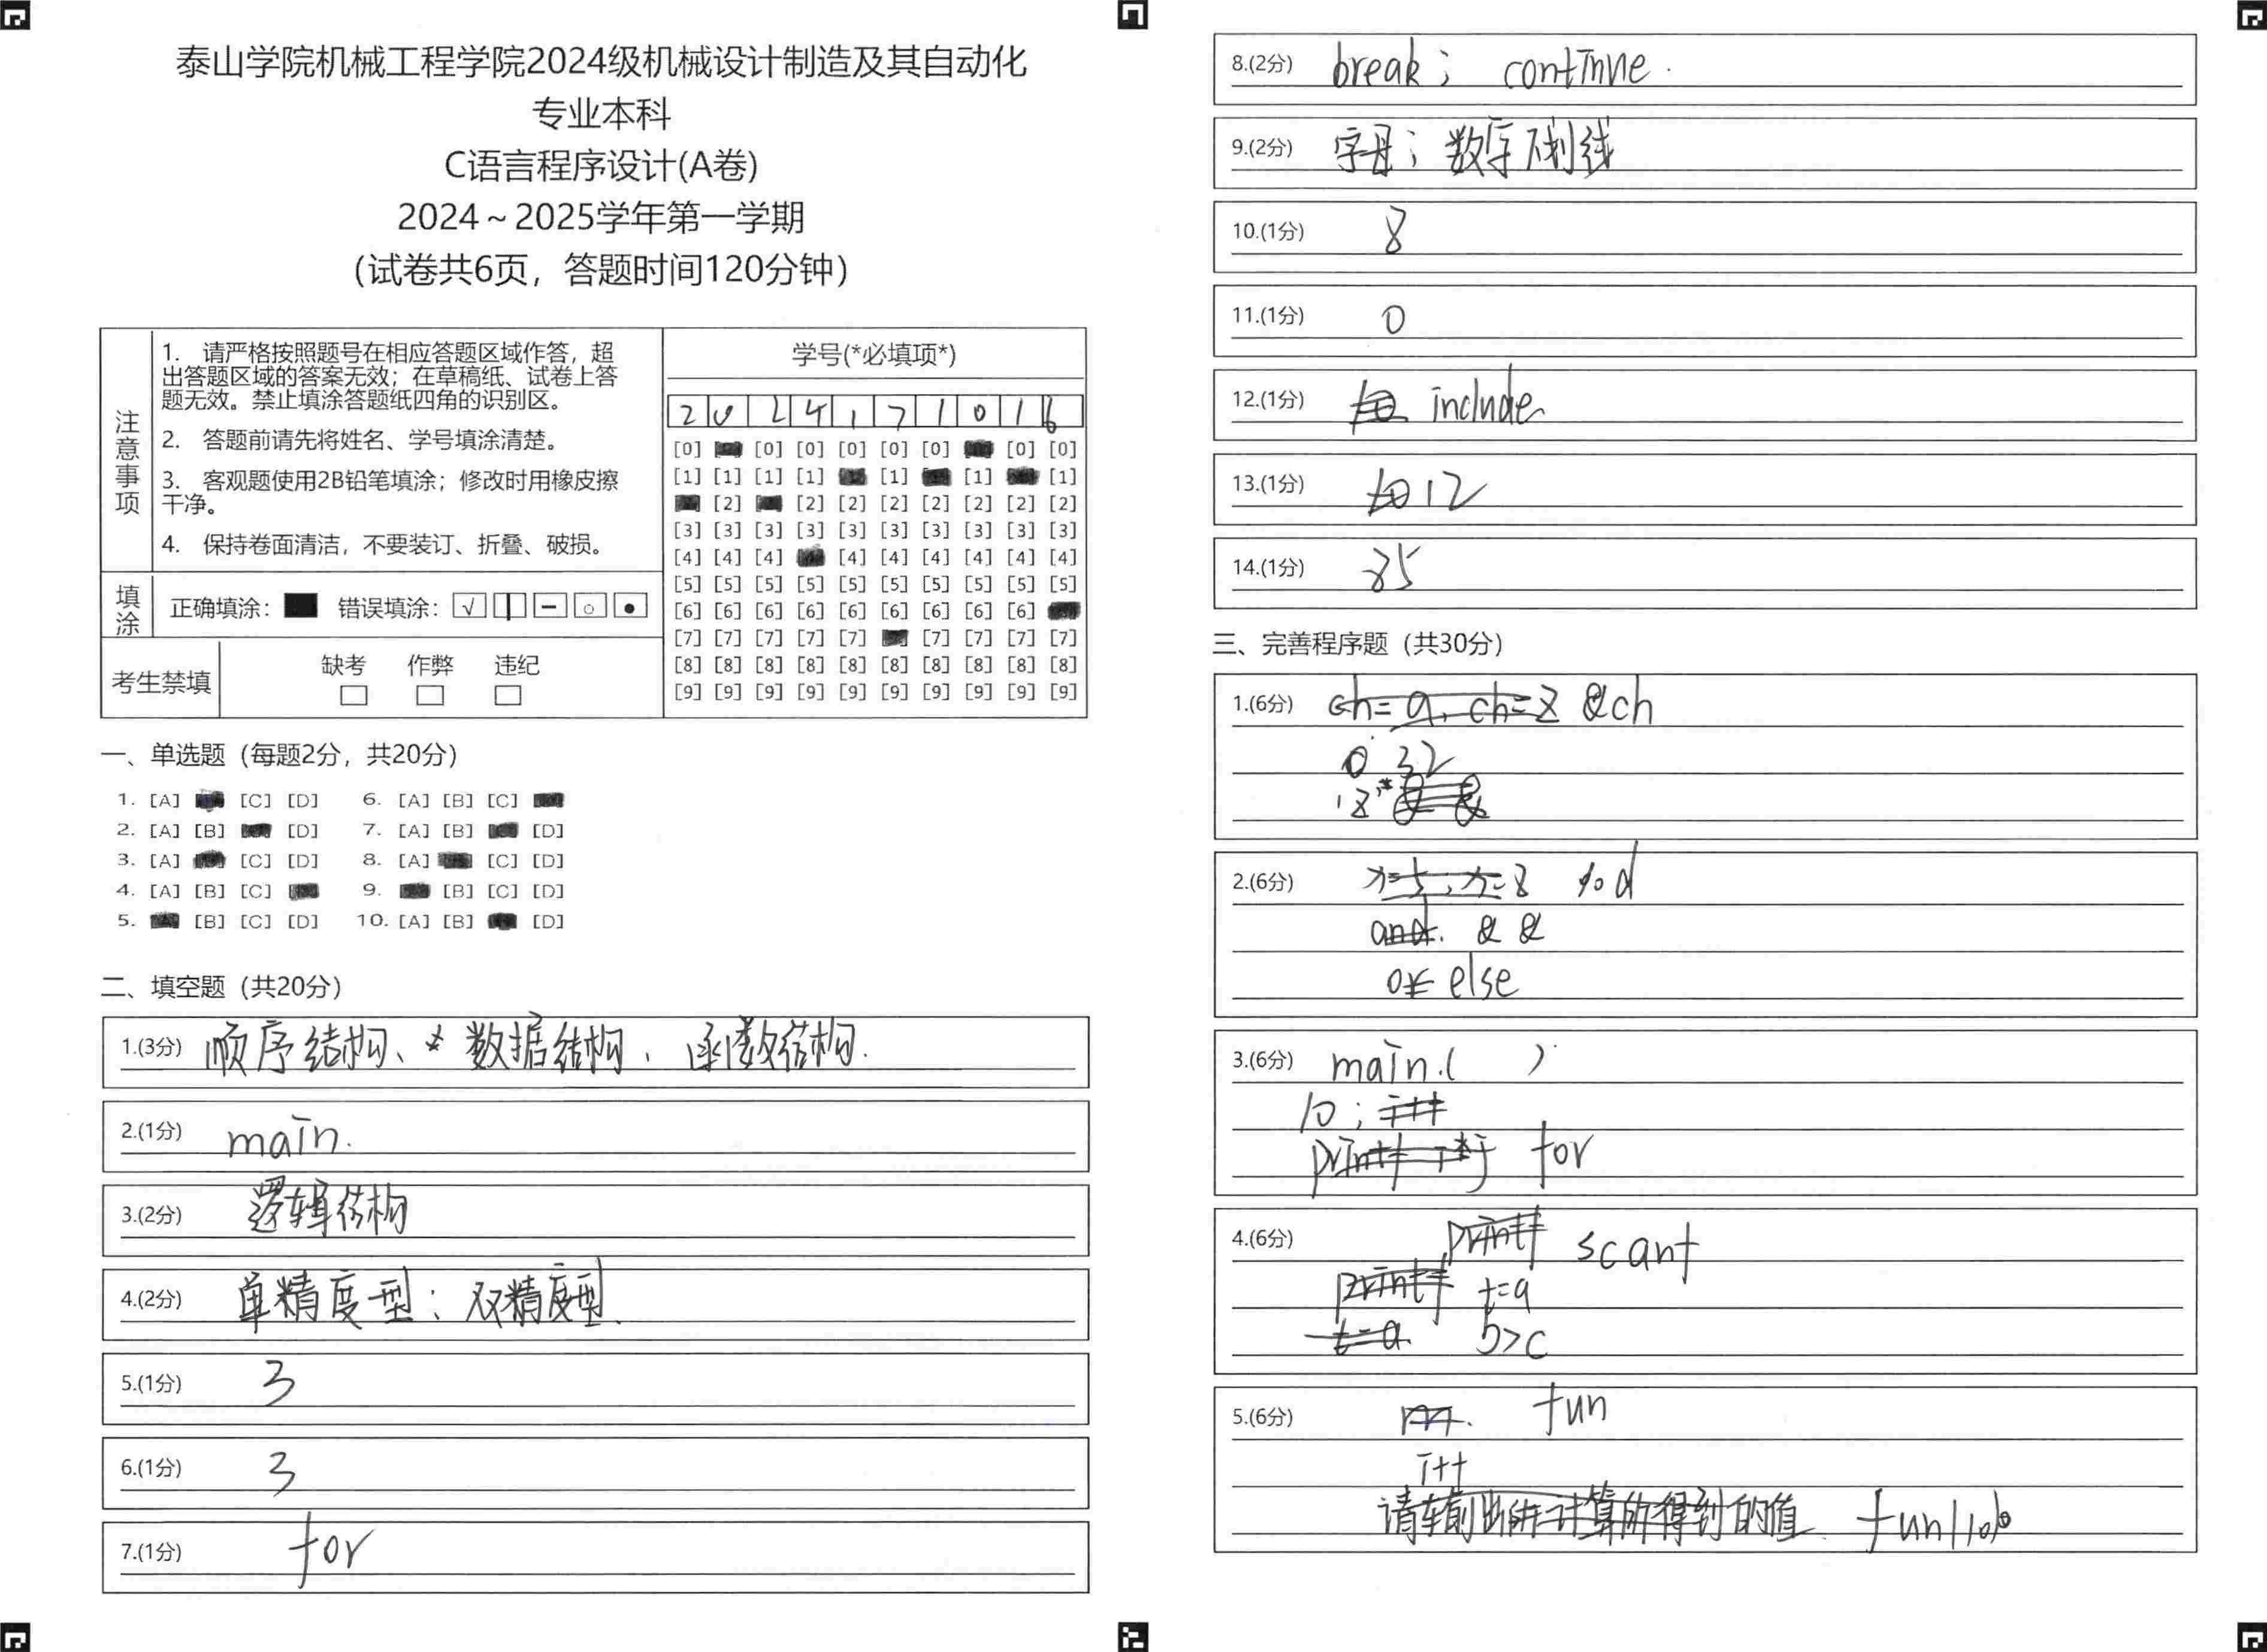 泰山学院机械工程学院2024级机械设计制造及其自动化
专业本科
C语言程序设计(A卷)
2024~2025学年第一学期
(试卷共6页，答题时间120分钟)
注意事项
1. 请严格按照题号在相应答题区域作答，超
出答题区域的答案无效；在草稿纸、试卷上答
题无效。禁止填涂答题纸四角的识别区。
2. 答题前请先将姓名、学号填涂清楚。
3. 客观题使用2B铅笔填涂；修改时用橡皮擦
干净。
4. 保持卷面清洁，不要装订、折叠、破损。
填涂 正确填涂： 错误填涂：
考生禁填 缺考 作弊 违纪
学号(*必填项*)
2 0 2 4 1 7 1 0 1 6
[0] [0] [0] [0] [0] [0] [0] [0]
[1] [1] [1] [1] [1] [1] [1]
[2] [2] [2] [2] [2] [2] [2] [2]
[3] [3] [3] [3] [3] [3] [3] [3] [3] [3]
[4] [4] [4] [4] [4] [4] [4] [4] [4]
[5] [5] [5] [5] [5] [5] [5] [5] [5] [5]
[6] [6] [6] [6] [6] [6] [6] [6] [6]
[7] [7] [7] [7] [7] [7] [7] [7] [7]
[8] [8] [8] [8] [8] [8] [8] [8] [8] [8]
[9] [9] [9] [9] [9] [9] [9] [9] [9] [9]
一、单选题（每题2分，共20分）
1. [A] [C] [D] 6. [A] [B] [C]
2. [A] [B] [D] 7. [A] [B] [D]
3. [A] [C] [D] 8. [A] [C] [D]
4. [A] [B] [C] 9. [B] [C] [D]
5. [B] [C] [D] 10. [A] [B] [D]
二、填空题（共20分）
1.(3分) 顺序结构、数据结构、函数结构.
2.(1分) main.
3.(2分) 逻辑结构
4.(2分) 单精度型；双精度型.
5.(1分) 3
6.(1分) 3
7.(1分) for
8.(2分) break； continue.
9.(2分) 字母；数字下划线
10.(1分) 8
11.(1分) 0
12.(1分) include
13.(1分) 12
14.(1分) 85
三、完善程序题（共30分）
1.(6分) ch=a, ch=z &ch
0 32
2.(6分) x=5, x=8 %d
and. &&
or else
3.(6分) main.( )
10; i++
printf i*j for
4.(6分) printf scanf
printf t=a
t=a. b>c
5.(6分) fun
i++
请输出所计算所得到的值